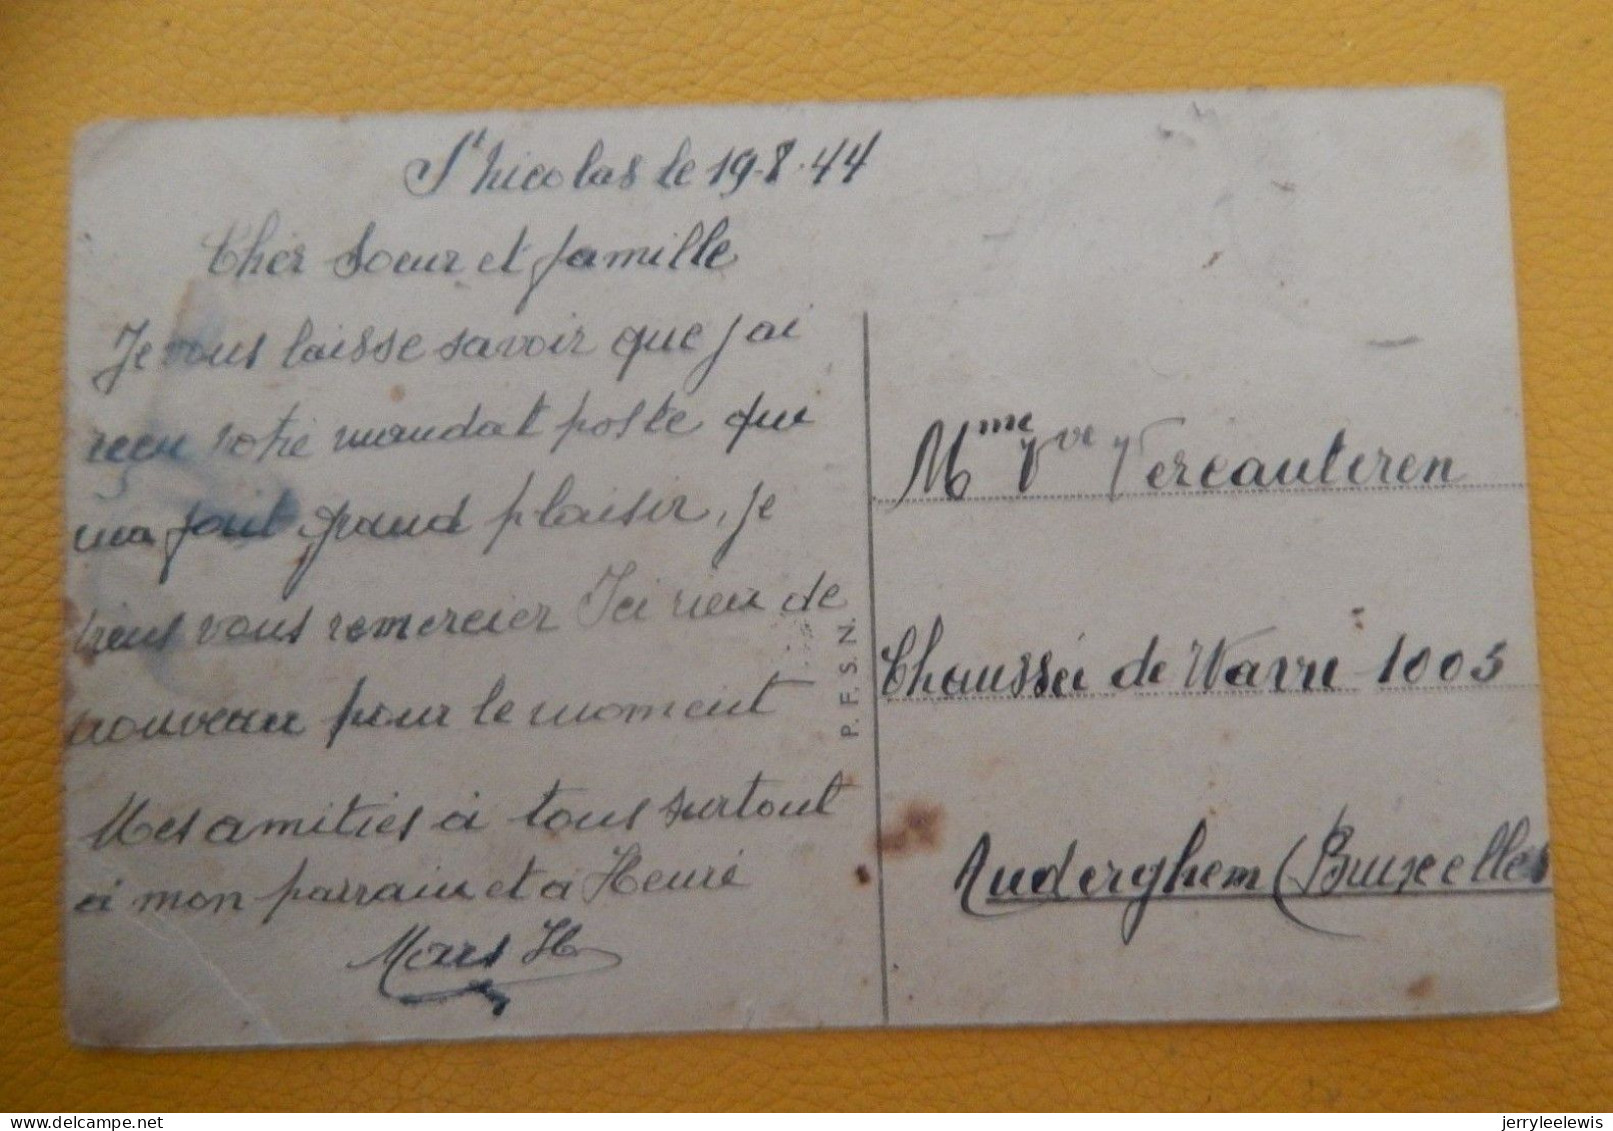 St Nicolas le 19.8.44
Cher Soeur et famille
Je vous laisse savoir que j'ai
reçu votre mandat poste qui
ma fait grand plaisir, je
viens vous remercier Ici rien de
nouveau pour le moment
Mes amitiés à tous surtout
à mon parrain et à Henri
H
P. F. S. N.
Mme Vve Vercauteren
Chaussée de Wavre 1005
Auderghem (Bruxelles
jerryleelewis